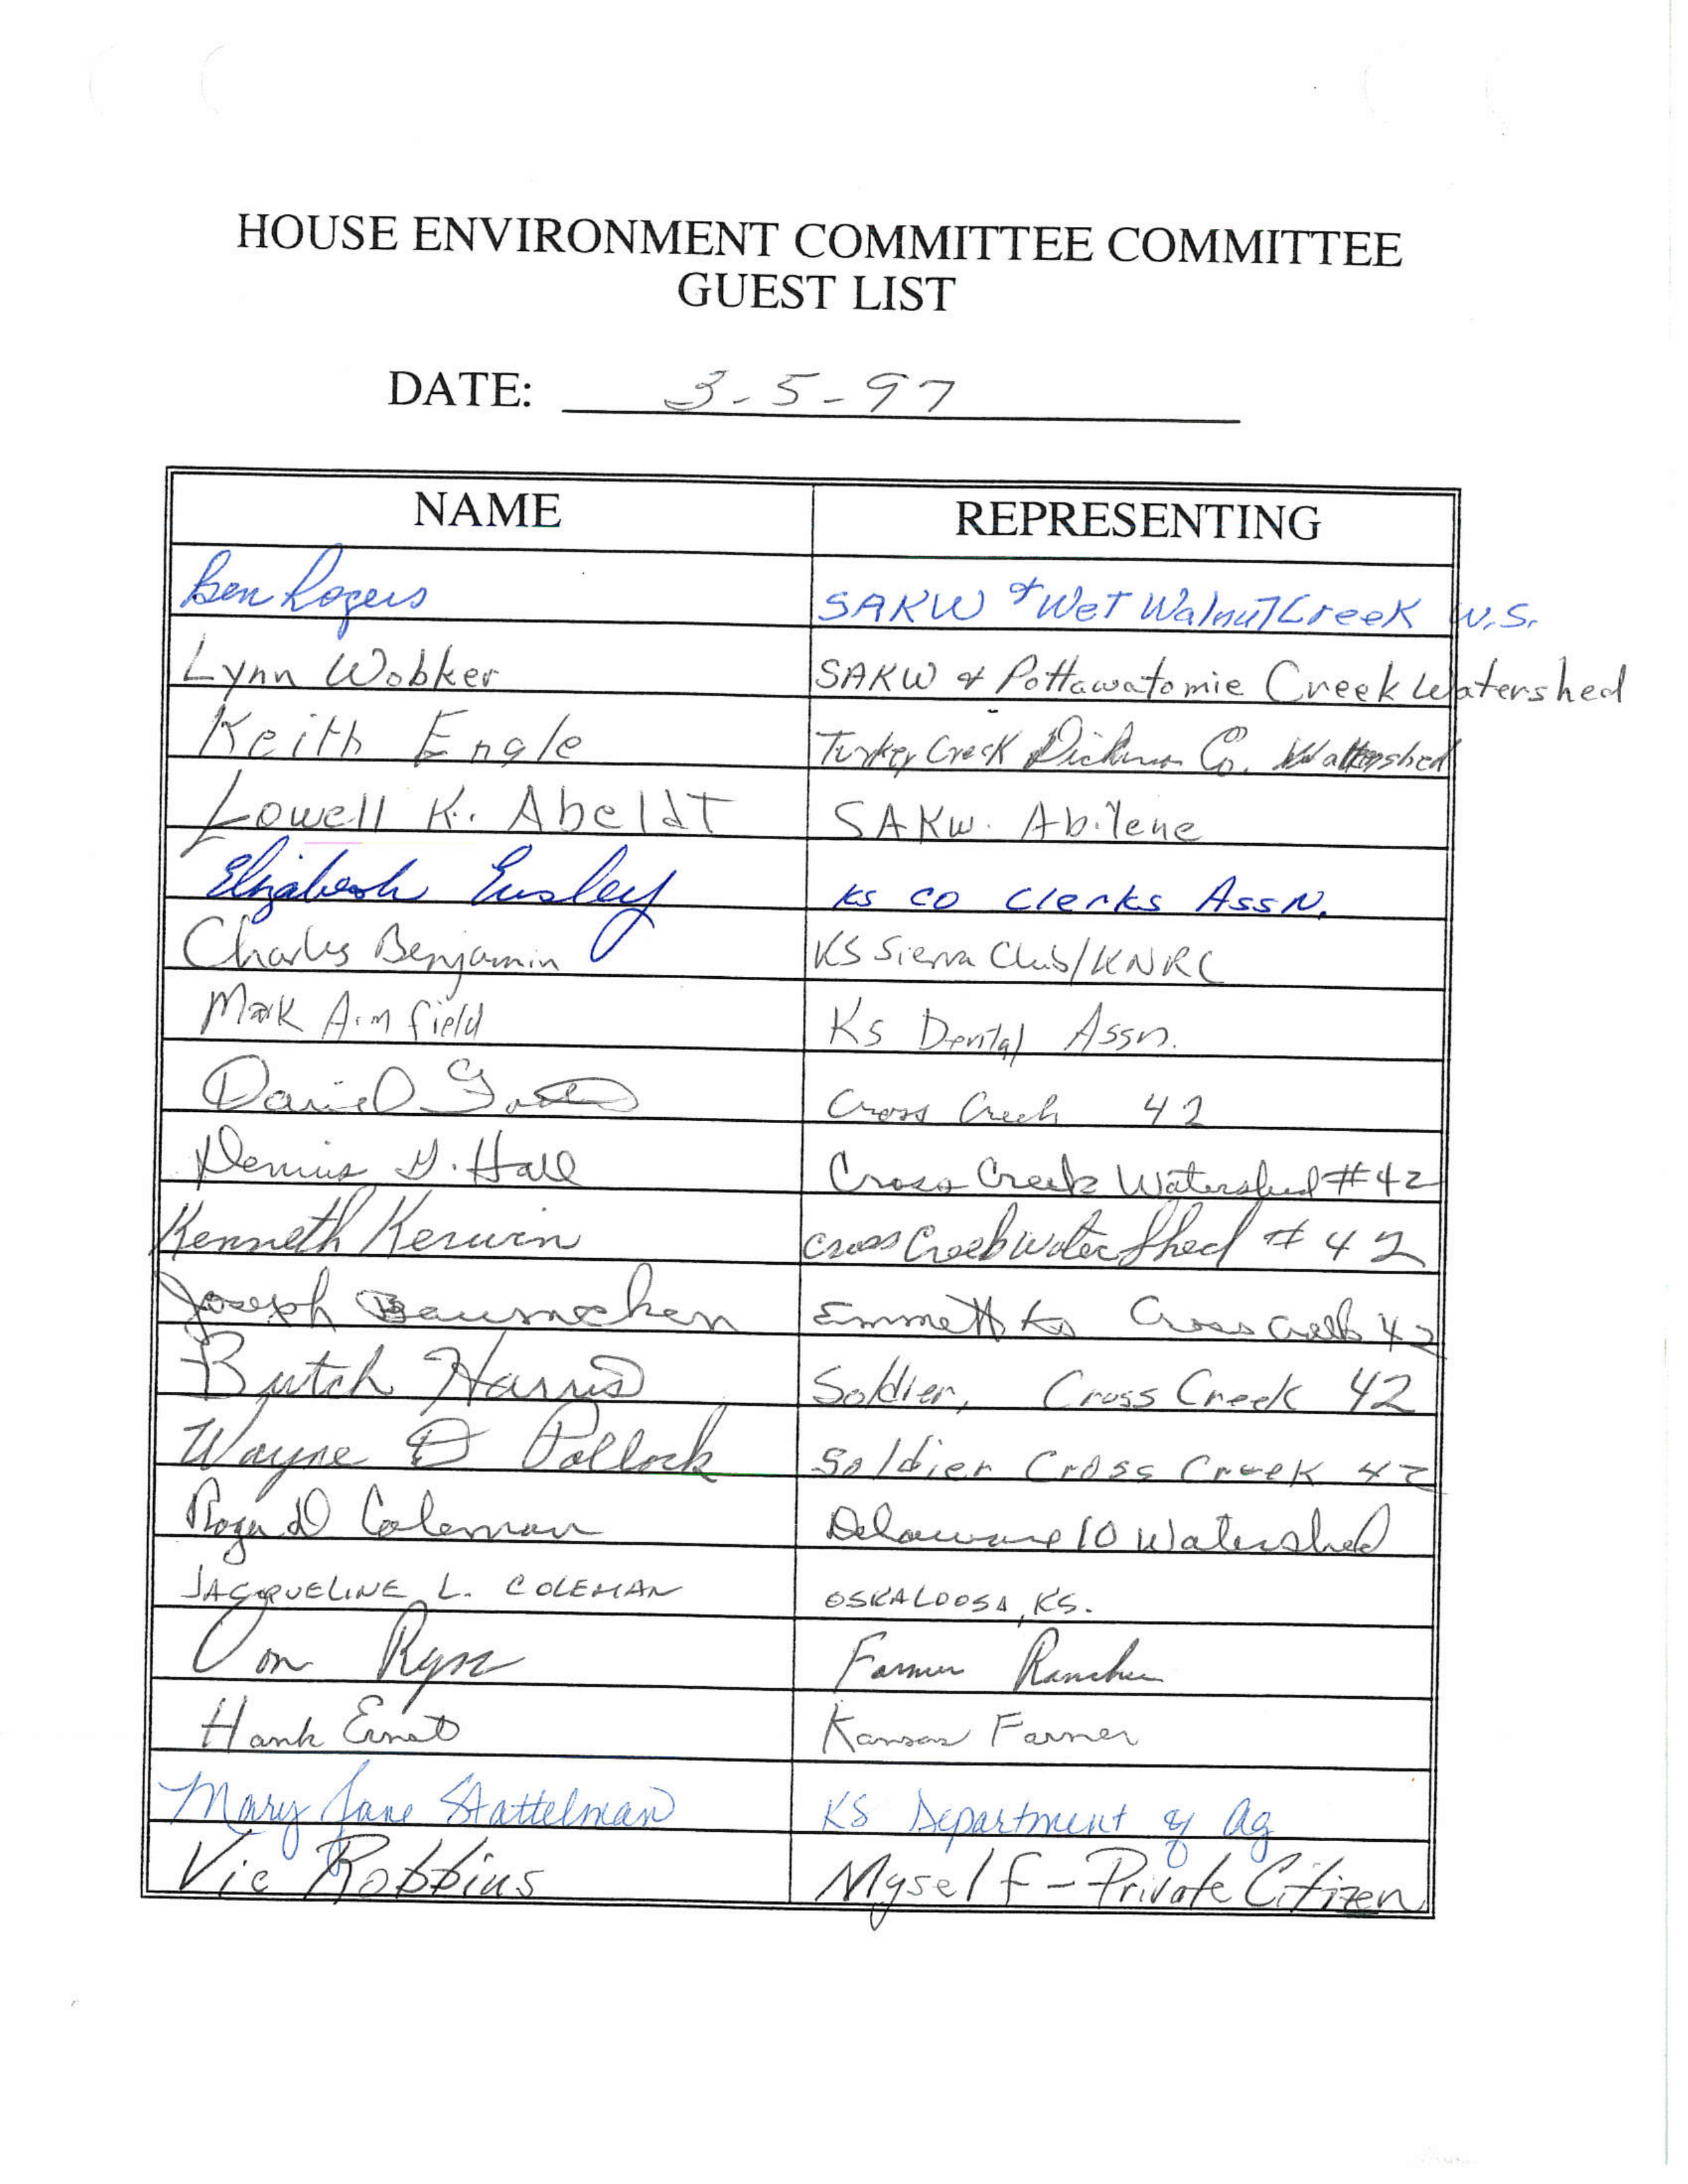 HOUSE ENVIRONMENT COMMITTEE COMMITTEE
GUEST LIST
DATE: 3-5-97
NAME REPRESENTING
Ben Rogers SAKW & Wet Walnut Creek W.S.
Lynn Wobker SAKW & Pottawatomie Creek Watershed
Keith Engle Turkey Creek Dickinson Co. Wattershed
Lowell K. Abeldt SAKW. Abilene
Elizabeth Ensley KS CO Clerks Assn.
Charles Benjamin KS Sierra Club/KNRC
Mark Armfield Ks Dental Assn.
Daniel Cross Creek 42
Dennis D. Hall Cross Creek Watershed #42
Kenneth Kerwin cross Creek water shed # 42
Joseph Emmett Ks Cross Creek 42
Butch Harris Soldier, Cross Creek 42
Wayne D Pollock Soldier Cross Creek 42
Roger D Coleman Delaware 10 Watershed
JACQUELINE L. COLEMAN OSKALOOSA, KS.
Farmer Rancher
Hank Ernst Kansas Farmer
Mary Jane Stattelman KS Department of Ag
Vic Robbins Myself - Private Citizen